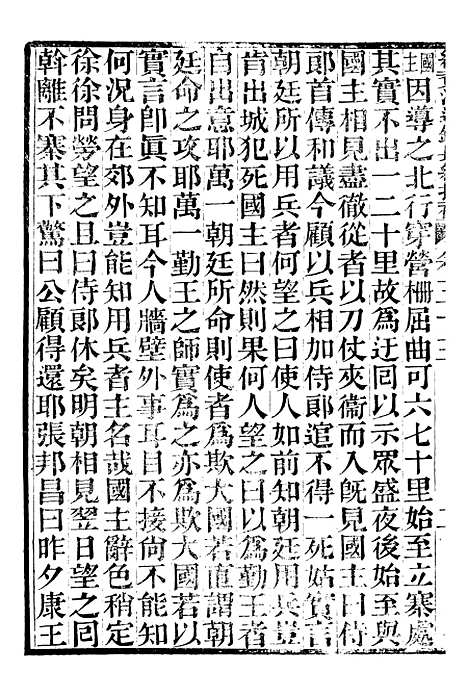 國主因導之北行穿營柵屈曲可六七十里始至立寨處
其實不出一二十里故爲迂囘以示眾盛夜後始至與
國主相見盡徹從者以刀仗夾衞而入旣見國主曰侍
郞首傳和議今顧以兵相加侍郞逭不得一死姑實言
朝廷所以用兵者何望之曰使人如前知朝廷用兵豈
肯出城犯死國主曰然則果何人望之曰以爲勤王者
自出意耶萬一朝廷所命則使者爲欺大國直謂朝
廷命之攻耶萬一勤王之師實爲之亦爲欺大國若以
實言卽眞不知耳今人牆壁外事耳目不接尙不能知
何況身在郊外豈能知用兵者主名哉國主辭色稍定
徐徐問勞望之且曰侍郞休矣明朝相見翌日望之囘
斡離不寨其下驚曰公顧得還耶張邦昌曰昨夕康王